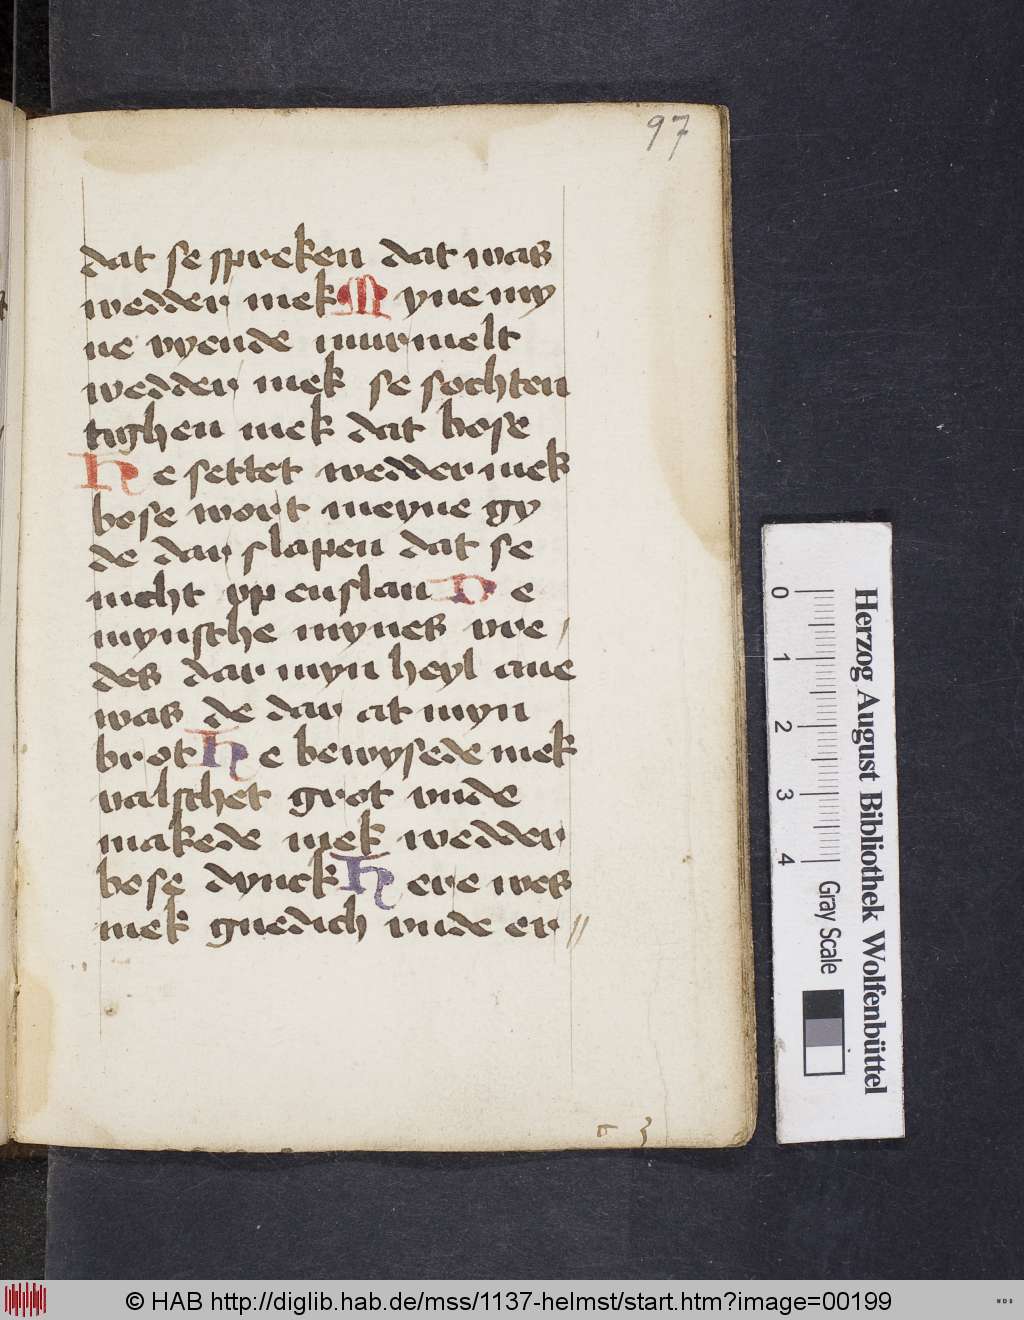 97
dat se spreken dat was
wedder mek Myne my
ne vyende murmelt
wedder mek se sochten
tighen mek dat bose
He settet wedder mek
bose wort meyne gy
de dar slapen dat se
nicht vp enslan De
mynsche mynes vre /
des dar myn heyl ane
was de dar at myn
brot He bewysede mek
valschet grot vnde
makede mek wedder
bose dynck Here wes
mek gnedich vnde er //
Herzog August Bibliothek Wolfenbüttel
0 1 2 3 4 Gray Scale
© HAB http://diglib.hab.de/mss/1137-helmst/start.htm?image=00199